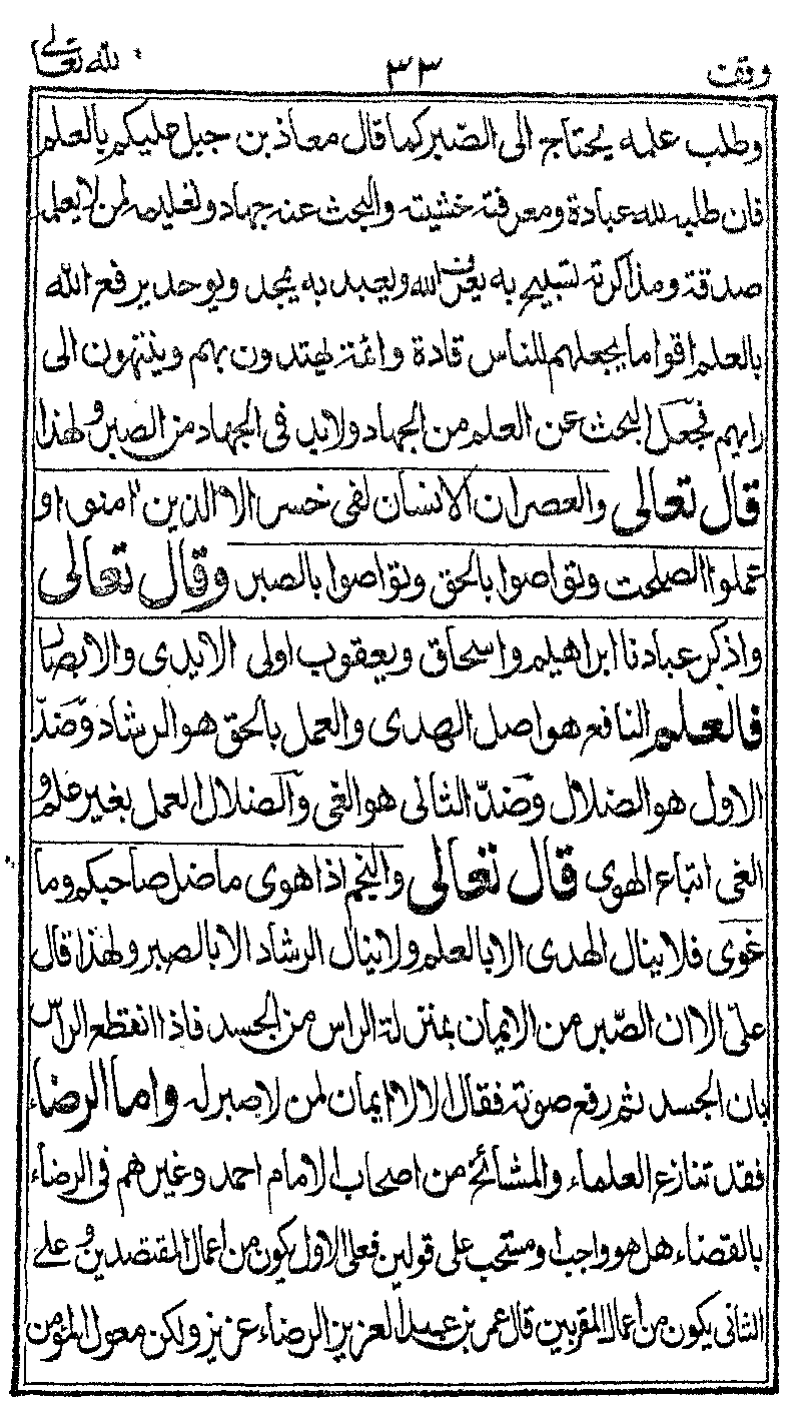 وقت ٣٣ لله تعالى
وطلب علمه يحتاج الى الصبر كما قال معاذ بن جبل عليكم بالعلم
فان طلبه لله عبادة ومعرفته خشيته والبحث عنه جهاد وتعليمه لمن لا يعلم
صدقة ومذاكرته تسبيح به يعرف الله ويعبد به يمجد ويوحد يرفع الله
بالعلم اقواما يجعلهم للناس قادة وائمة يهتدون بهم وينتهون الى
رايهم فجعل البحث عن العلم من الجهاد ولابد فى الجهاد من الصبر ولهذا
قال تعالى والعصر ان الانسان لفى خسر الا الذين امنوا و
عملوا الصلحت وتواصوا بالحق وتواصوا بالصبر وقال تعالى
واذكر عبادنا ابراهيم واسحاق ويعقوب اولى الايدى والابصار
فالعلم النافع هو اصل الهدى والعمل بالحق هو الرشاد وضدّ
الاول هو الضلال وضدّ الثانى هو الغى والضلال العمل بغير علم و
الغى اتباع الهوى قال تعالى والنجم اذا هوى ما ضل صاحبكم وما
غوى فلا ينال الهدى الا بالعلم ولا ينال الرشاد الا بالصبر ولهذا قال
علىّ الا ان الصّبر من الايمان بمنزلة الراس من الجسد فاذا انقطع الراس
بان الجسد ثم رفع صوته فقال الا لا ايمان لمن لا صبر له واما الرضاء
فقد تنازع العلماء والمشائخ من اصحاب الامام احمد وغيرهم فى الرضاء
بالقضاء هل هو واجب او مستحب على قولين فعلى الاول يكون من اعمال المقتصدين و على
الثانى يكون من اعمال المقربين قال عمر بن عبد العزيز الرضاء عزيز ولكن معول المؤمن